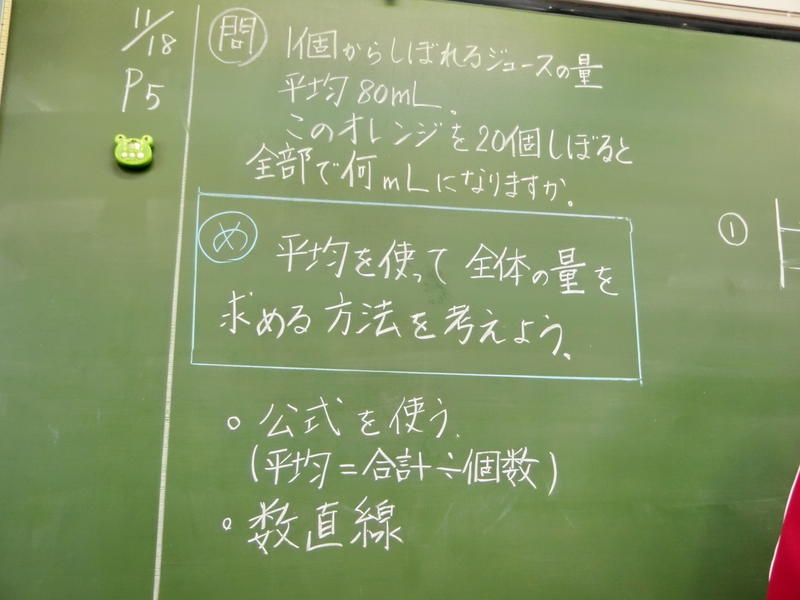 11/18
P5
問 1個からしぼれるジュースの量
平均80mL。
このオレンジを20個しぼると
全部で何mLになりますか。
め 平均を使って全体の量を
求める方法を考えよう。
。公式を使う。
(平均=合計÷個数)
。数直線
①